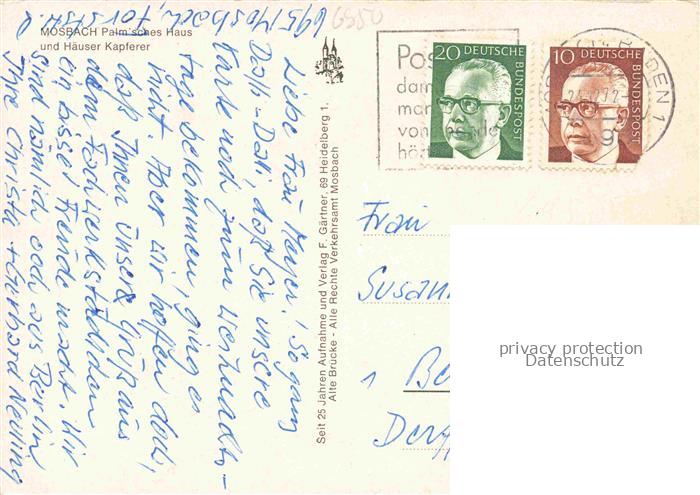 MOSBACH Palm'sches Haus
und Häuser Kapferer
695 Mosbach, Forststr.
6950
Liebe Frau Meyer! So ganz
Dalli-Dalli, daß Sie unsere
Karte noch zum Weihnachts-
tage bekommen, ging es
nicht. Aber wir hoffen doch,
daß Ihnen unsere Grüße aus
dem Fachwerkstädtchen
ein bissel Freude macht. Wir
sind nämlich auch aus Berlin!
Ihre Christa + Gerhard
Seit 25 Jahren Aufnahme und Verlag F. Gärtner, 69 Heidelberg 1,
Alte Brücke - Alle Rechte Verkehrsamt Mosbach
Pos
dam
man
von
hö
20 DEUTSCHE BUNDESPOST
10 DEUTSCHE BUNDESPOST
DEN 1
72
9
Frau
Susan
1 Be
Der
privacy protection
Datenschutz